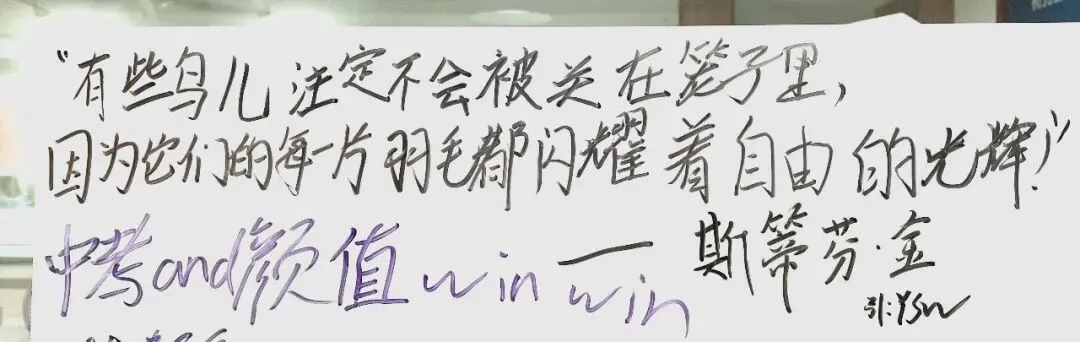 “有些鸟儿注定不会被关在笼子里,
因为它们的每一片羽毛都闪耀着自由的光辉!”
——斯蒂芬·金
引:YSW
中考and颜值win win